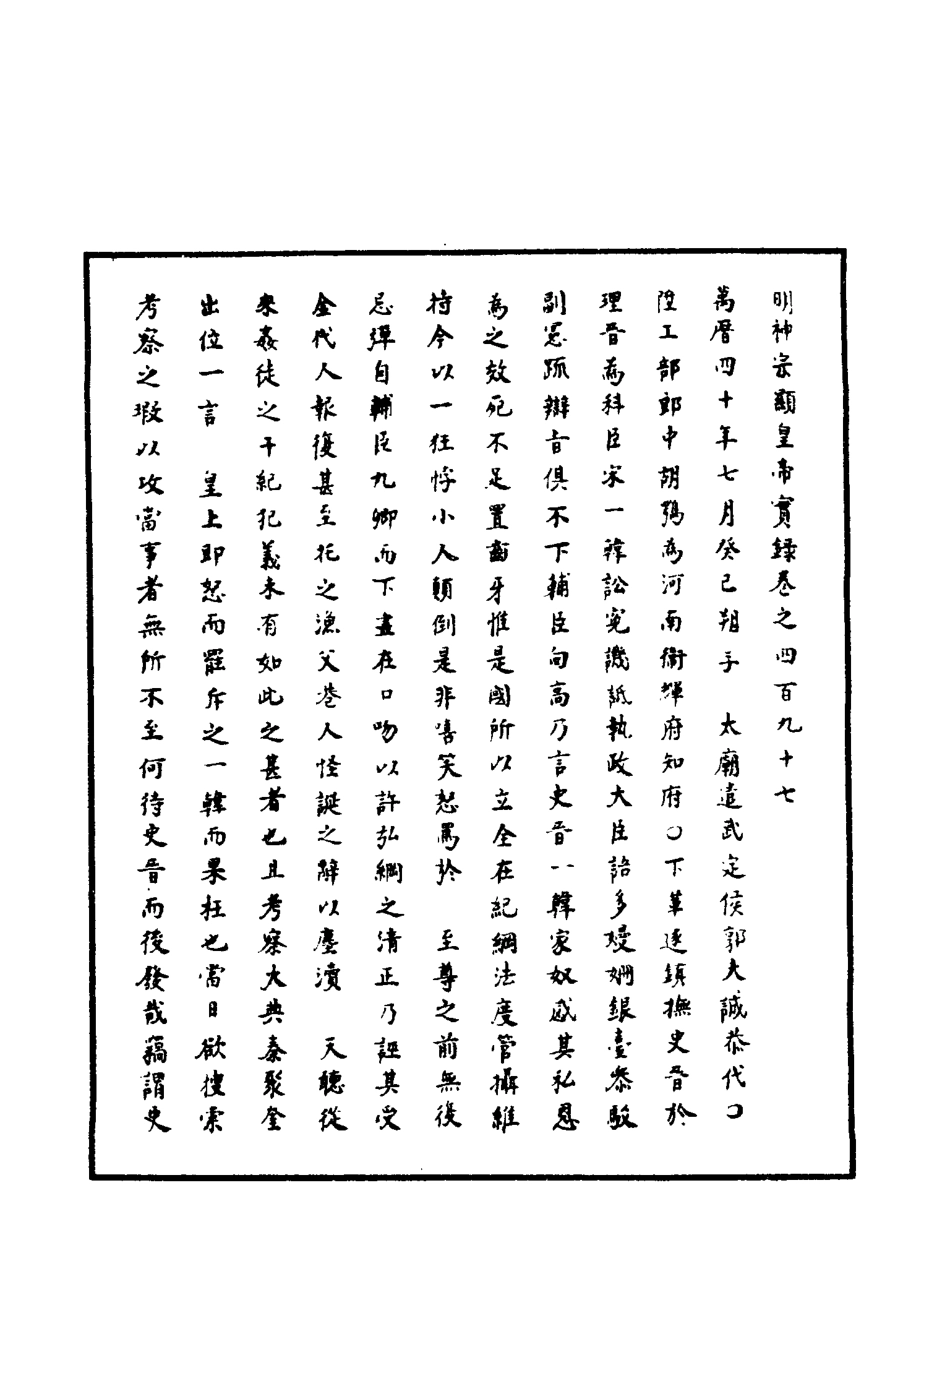 明神宗顯皇帝實録卷之四百九十七
萬曆四十年七月癸巳朔享　太廟遣武定侯郭大誠恭代〇
陞工部郎中胡鶚為河南衛輝府知府〇下革逐鎮撫史晋於
理晋為科臣宋一韓訟寃譏詆執政大臣語多嫚姍銀臺叅駁
副憲疏辯旨俱不下輔臣向高乃言史晋一韓家奴感其私恩
為之效死不足置齒牙惟是國所以立全在紀綱法度管攝維
持今以一狂悖小人顛倒是非嘻笑怒罵於　至尊之前無復
忌彈自輔臣九卿而下盡在口吻以許弘綱之清正乃誣其受
金代人報復甚至托之漁父巷人怪誕之辭以塵瀆　天聽從
來姦徒之干紀犯義未有如此之甚者也且考察大典秦聚奎
出位一言　皇上即怒而罷斥之一韓而果枉也當日欲搜索
考察之瑕以攻當事者無所不至何待史晋而後發哉竊謂史